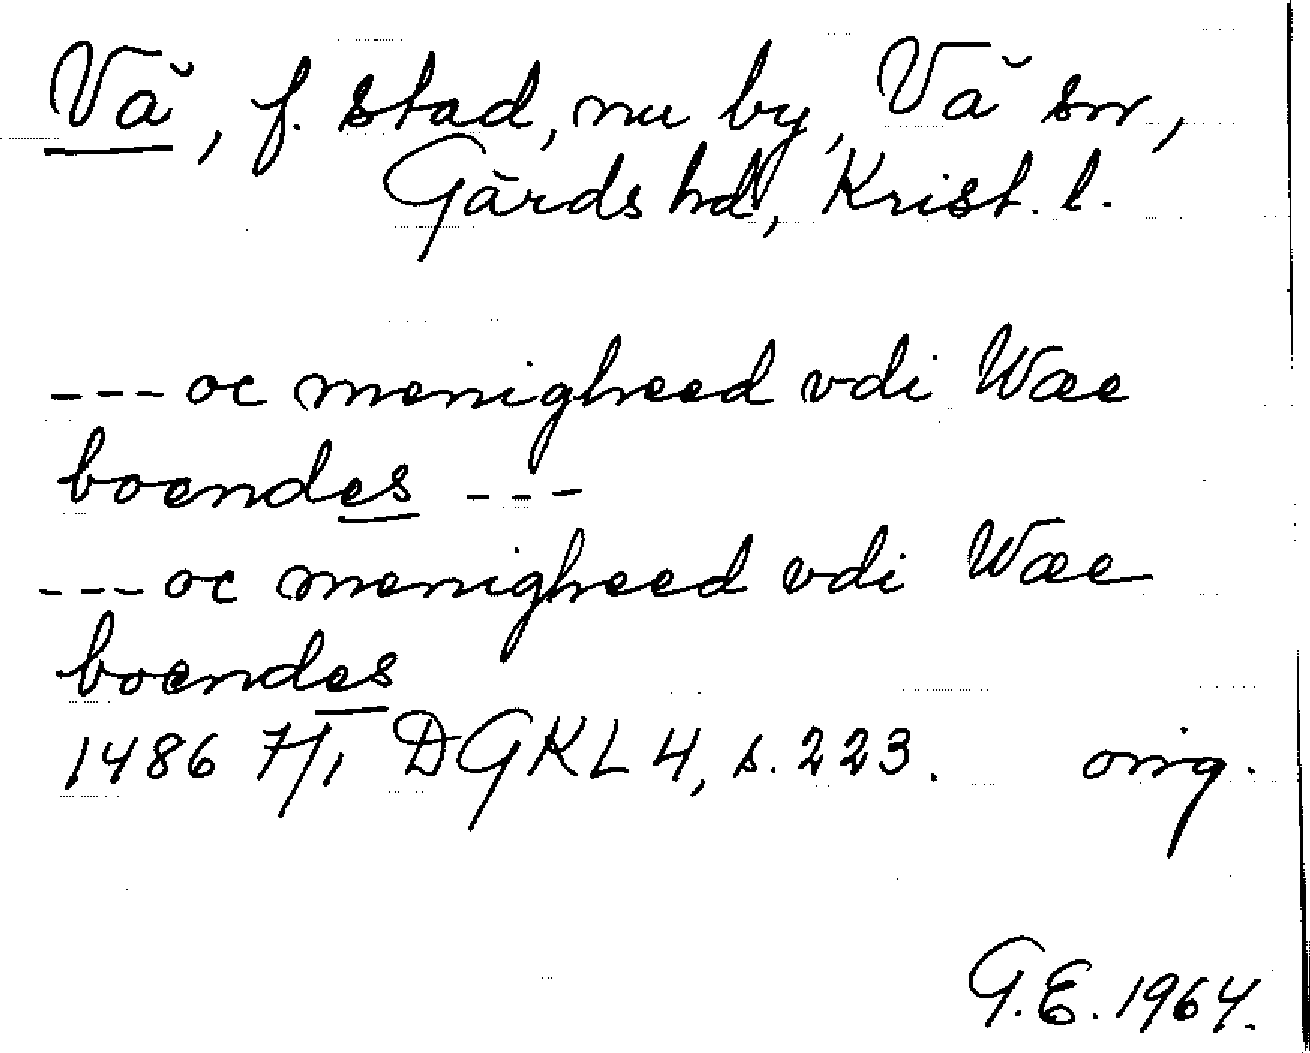 Vä, f. stad, nu by, Vä sn,
Gärds hd, Krist. l.
---oc menigheed vdi Wæe
boendes ---
---oc menigheed vdi Wæe
boendes
1486 7/1 DGKL 4, s. 223. orig.
G.E. 1964.